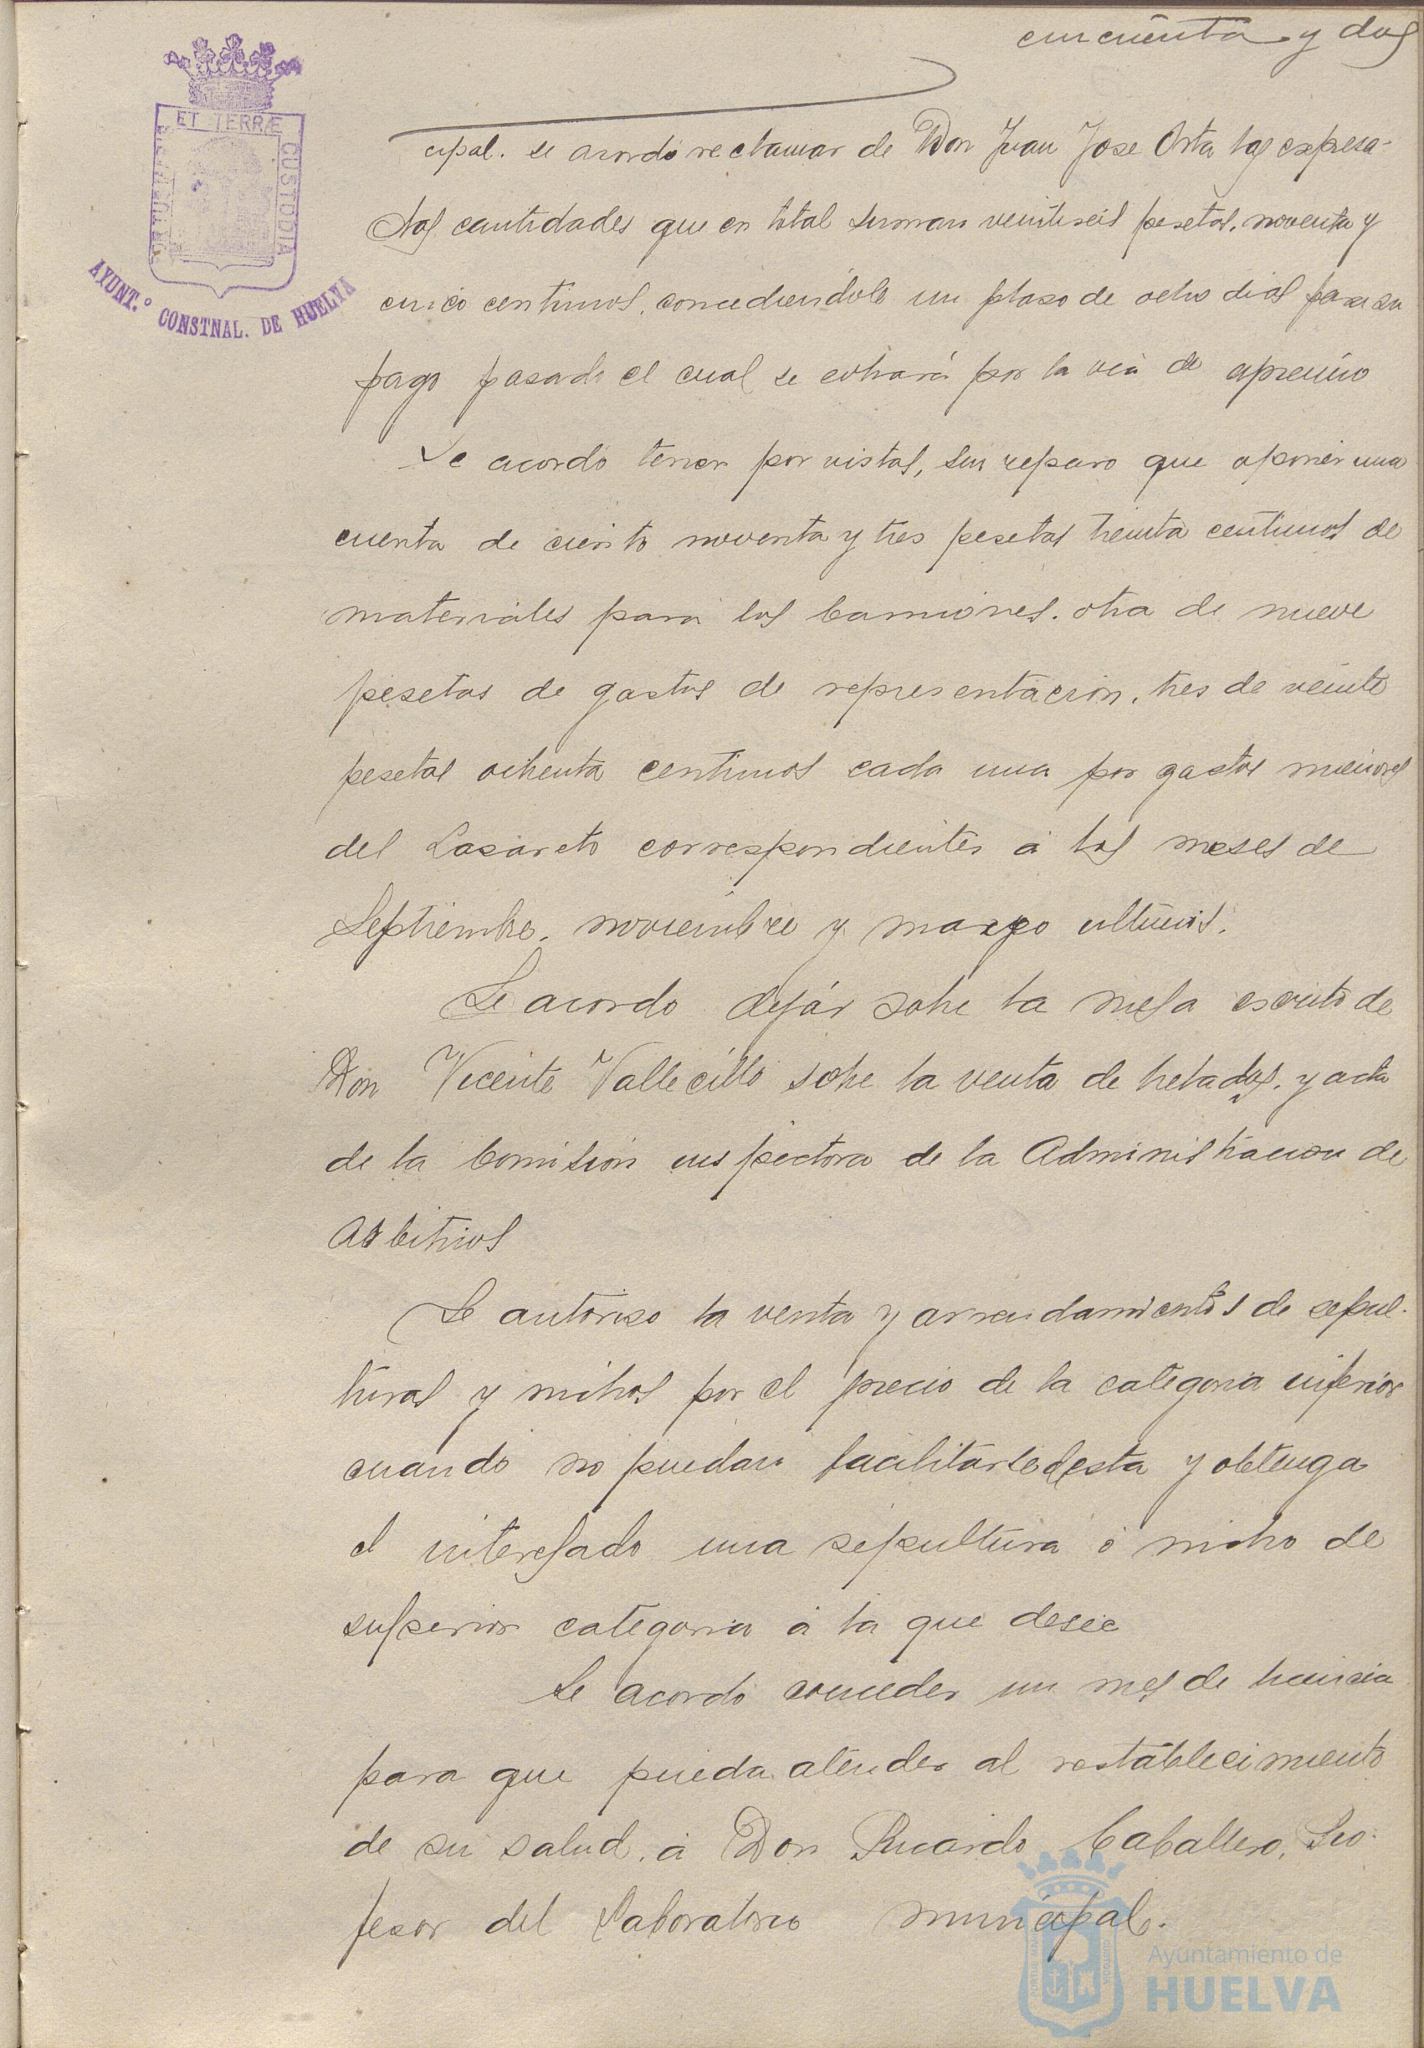 cincuenta y dos
ET TERRÆ
CUSTODIA
AYUNT.º CONSTNAL. DE HUELVA
cipal. se acordo reclamar de Don Juan Jose Orta las expresa-
das cantidades que en total suman veintiseis pesetas, noventa y
cinco centimos, concediendole un plazo de ocho dias para su
pago pasado el cual se cobrará por la via de apremio
Se acordo tener por vistas, sin reparo que oponer una
cuenta de ciento noventa y tres pesetas treinta centimos de
materiales para los camiones. otra de nueve
pesetas de gastos de representacion, tres de veinte
pesetas ochenta centimos cada una por gastos menores
del Lazareto correspondientes á los meses de
Septiembre, noviembre y marzo ultimos.
Se acordo dejár sobre la mesa escrito de
Don Vicente Vallecillo sobre la venta de helados, y acta
de la Comisión inspectora de la Administracion de
Arbitrios
Se autorizo la venta y arrendamientos de sepul-
turas y nichos por el precio de la categoria inferior
cuando no puedan facilitarse de esta y obtenga
el interesado una sepultura ó nicho de
superior categoria á la que desee
Se acordó conceder un mes de licencia
para que pueda atender al restablecimiento
de su salud, á Don Ricardo Caballero, Pro-
fesor del Laboratorio municipal.
Ayuntamiento de
HUELVA